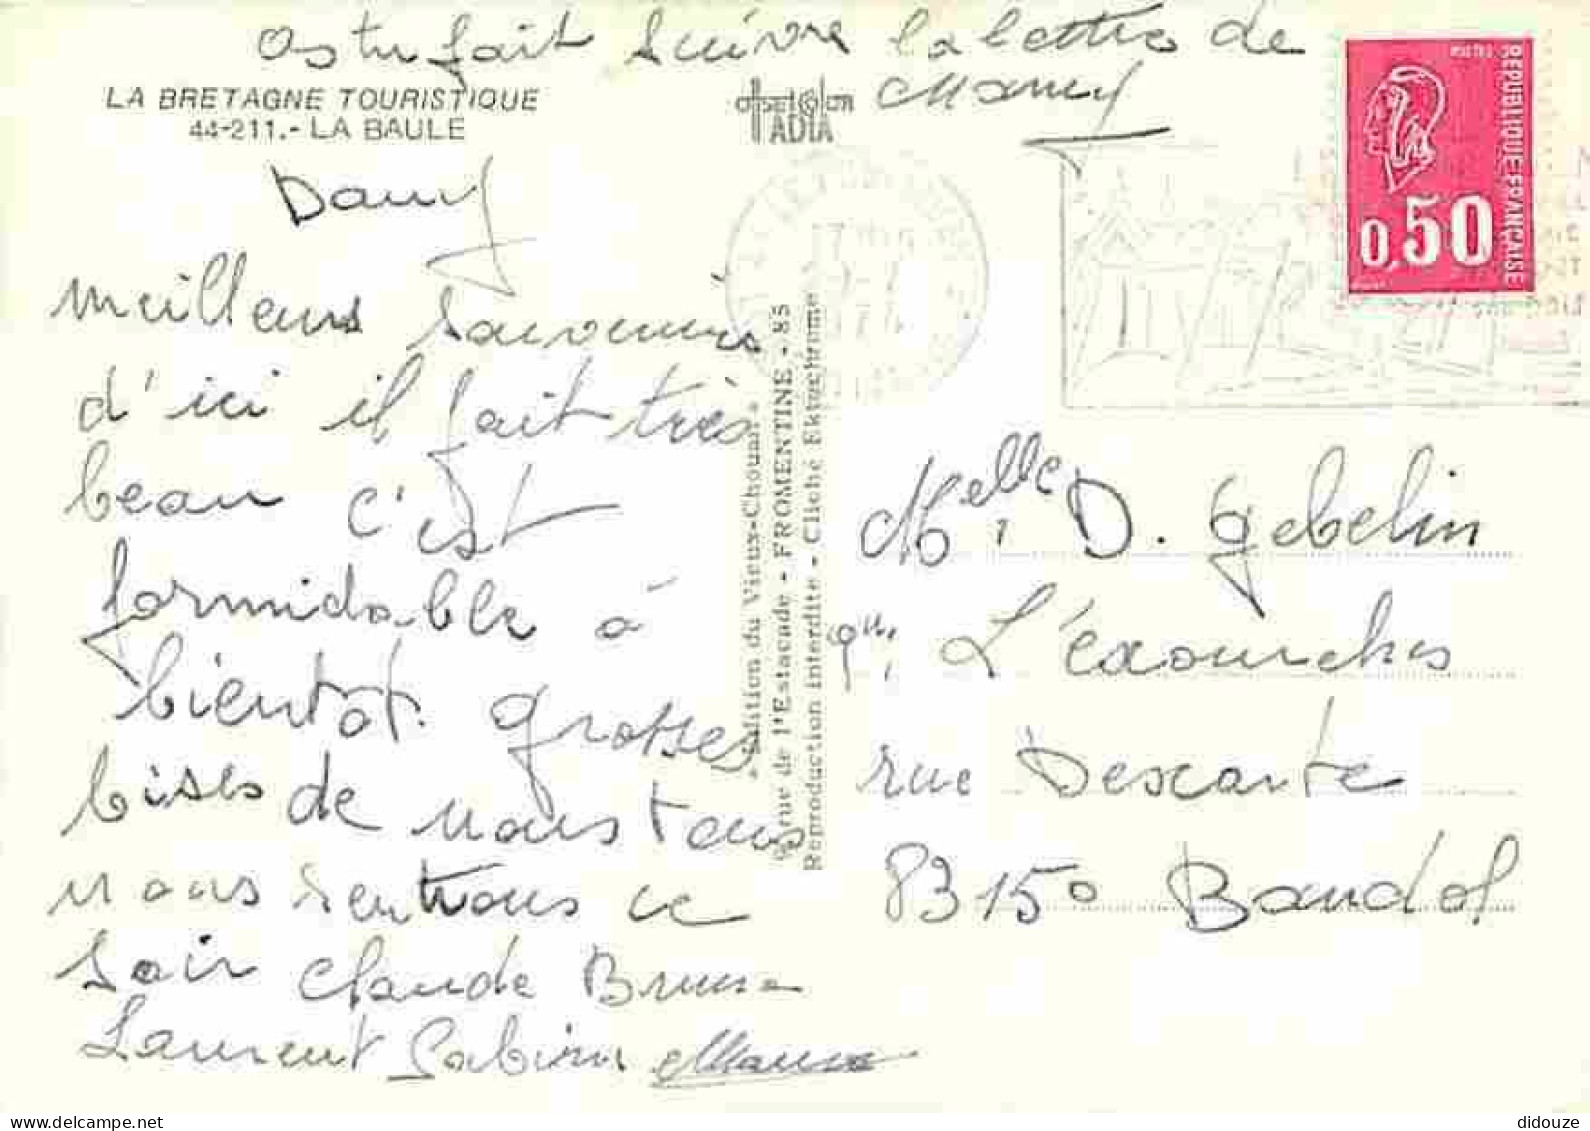 as tu fait suivre la lettre de
Mamy
LA BRETAGNE TOURISTIQUE
44-211.- LA BAULE
offset color
ADIA
Dany
meilleurs souvenirs
d'ici il fait très
beau c'est
formidable à
bientôt. grosses
bises de nous tous
nous rentrons ce
soir Claude Bruno
Laurent Sabine
Edition du Vieux-Chouan
rue de l'Estacade - FROMENTINE - 85
Reproduction interdite - Cliché Ektachrome
REPUBLIQUE FRANÇAISE
POSTES
0,50
Melle D. Gebelin
L'exourches
rue Descarte
83150 Bandol
delcampe.net
didouze